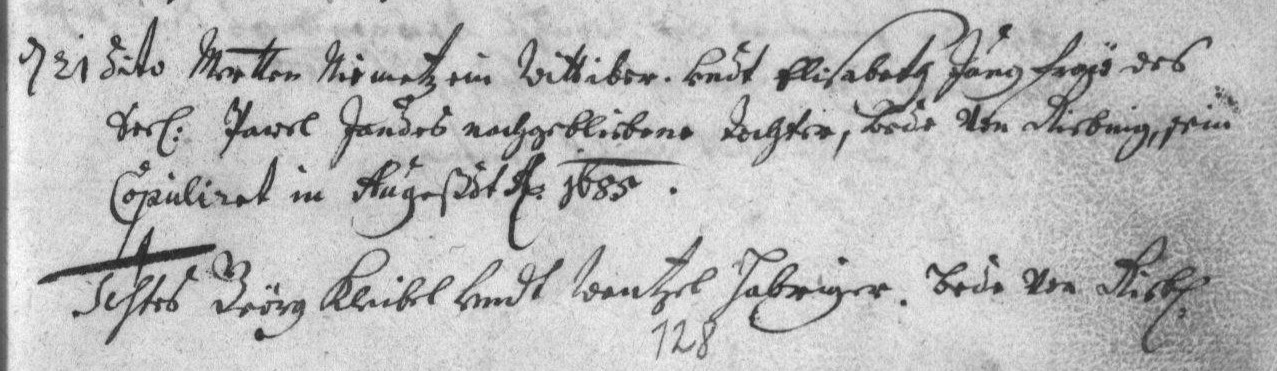 d 21 dito Merten Niemetz ein Wittiber. undt Elisabeth Jungfraw des
Seel: Pawel Jandes nachgebliebene Tochter, bede von Riebnig, sein
Copuliret in Augusst A: 1685.
Testes Georg Kleibel undt Wentzel Jabriger. bede von Rieb:
128